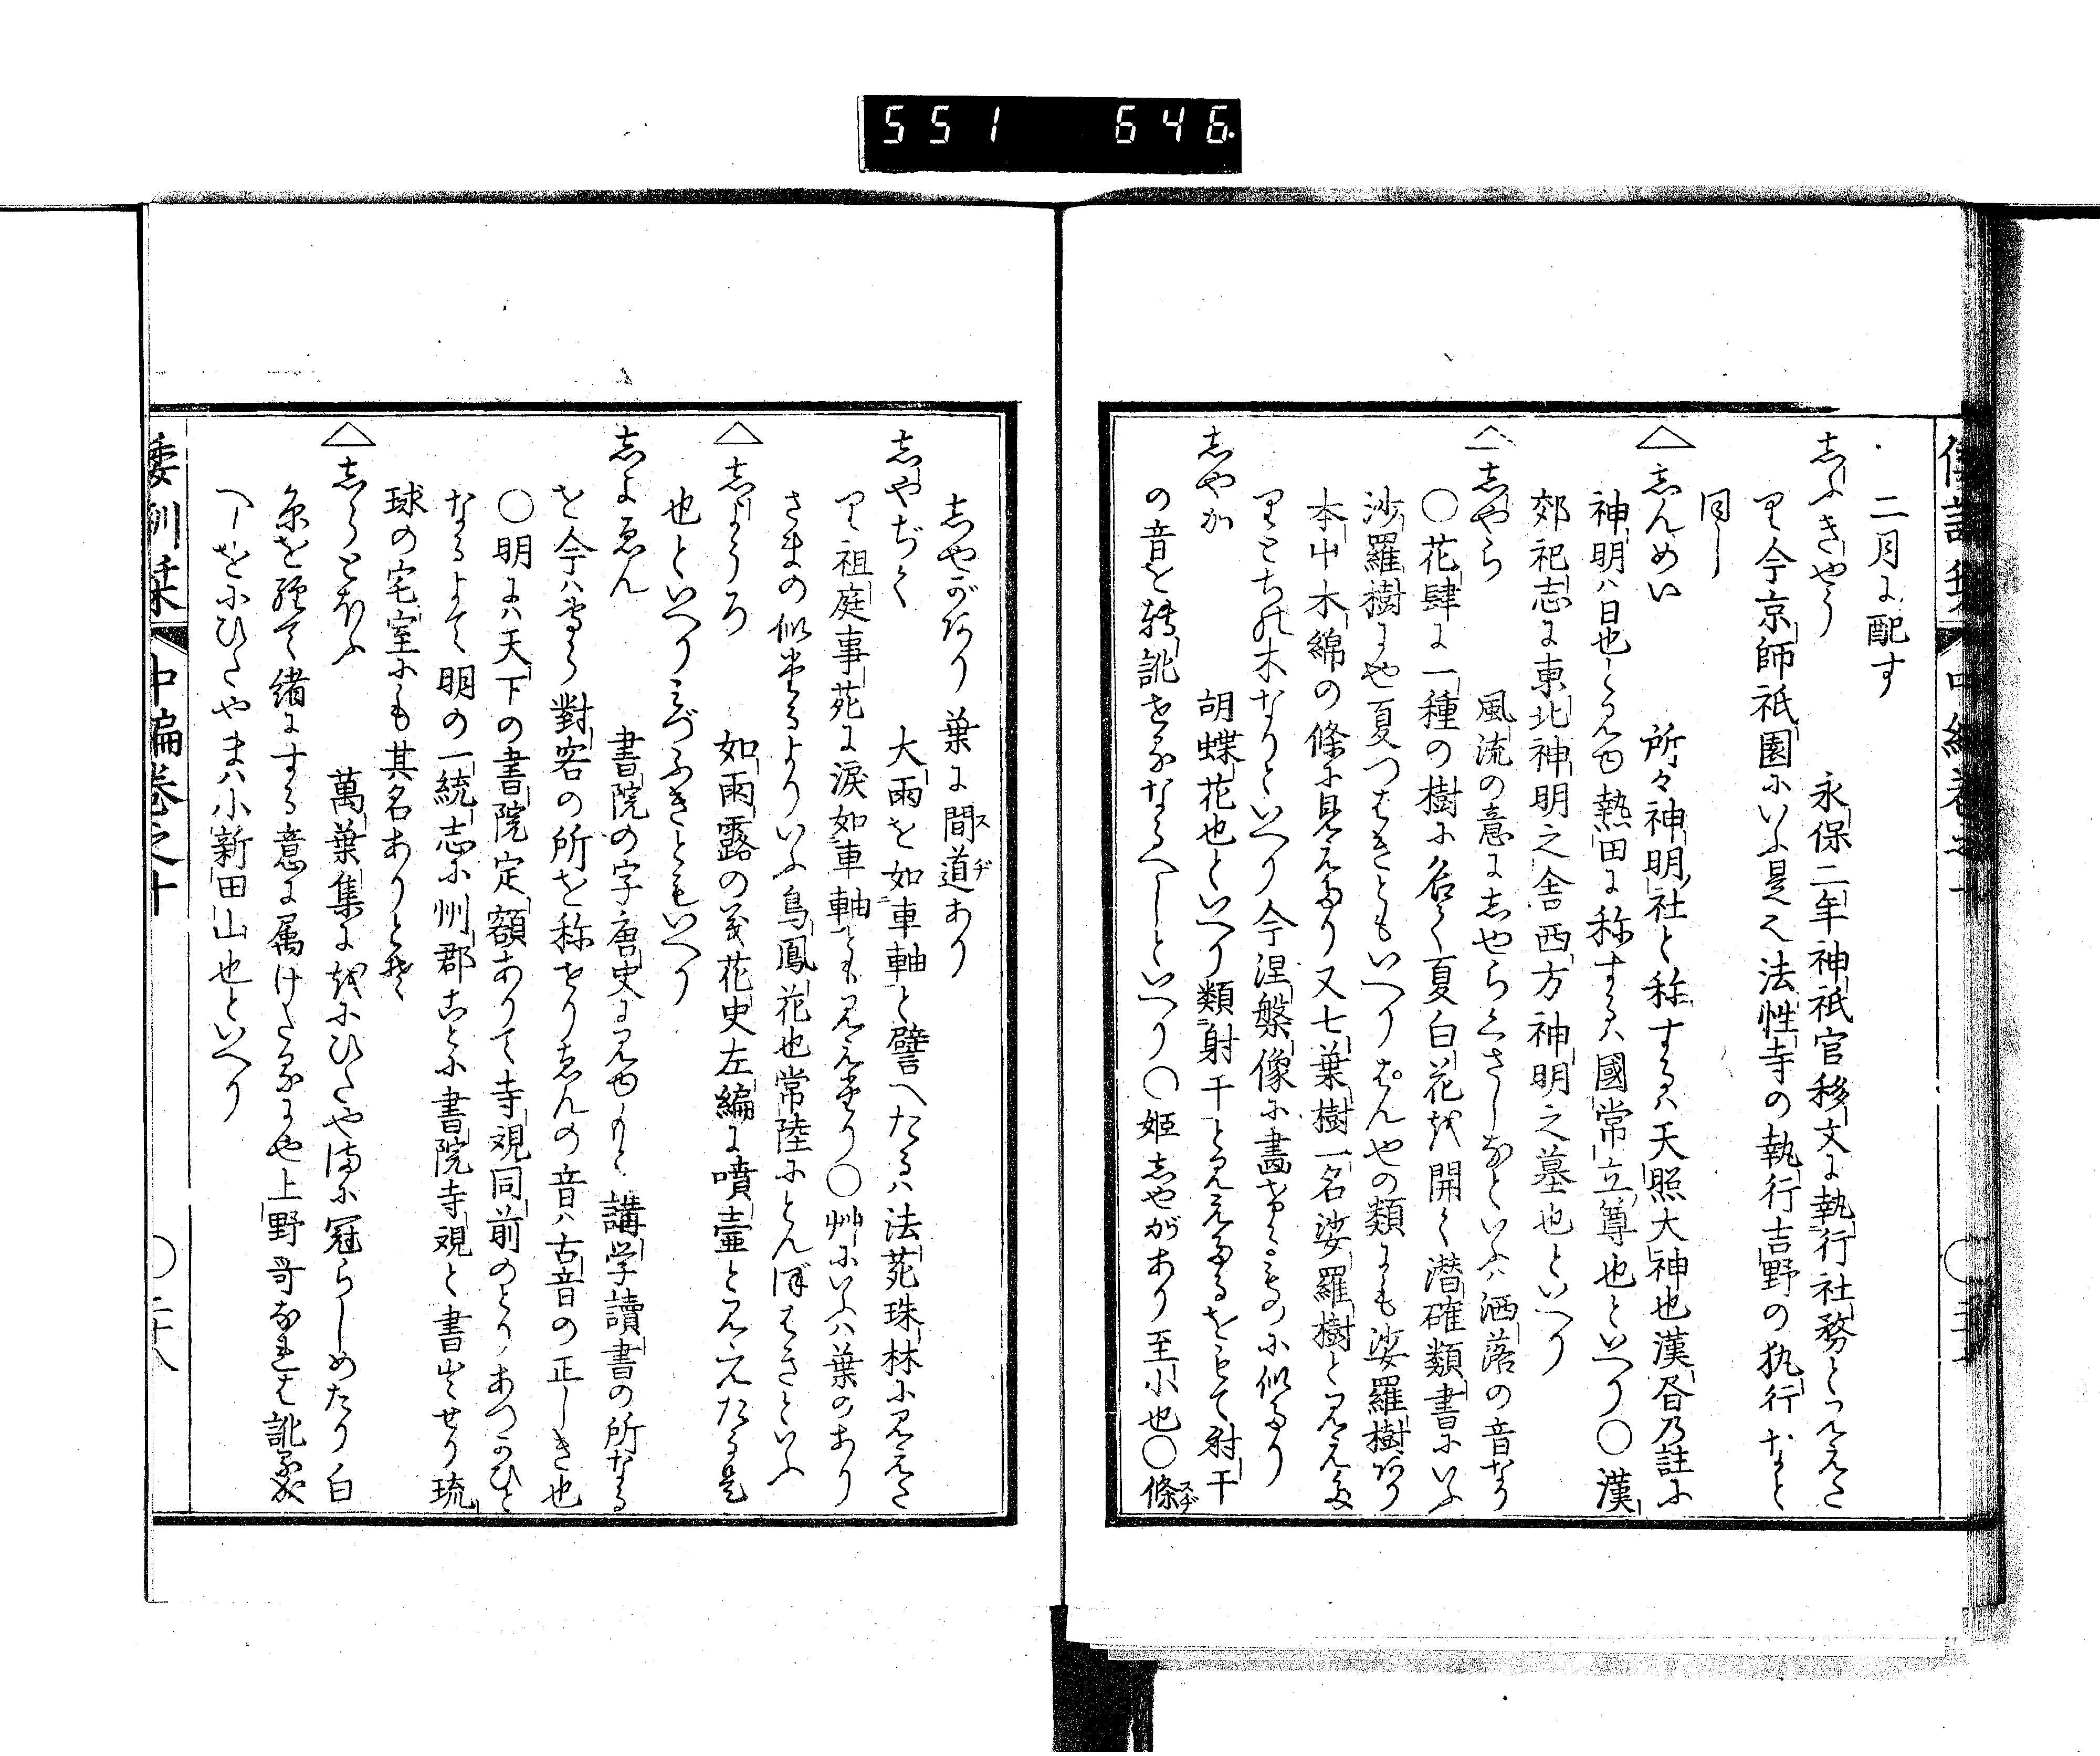 551 646
二月に配す
志ふきやう 永保二年神祇官移文に執行社務と見えた
り今京師祇園にいふ是也法性寺の執行吉野の執行なと
同し
△志んめい 所々神明社と称するハ天照大神也漢書乃註に
神明ハ日也と見ゆ熱田に称するハ國常立尊也といへり〇漢
郊祀志に東北神明之舎西方神明之墓也といへり
△志やら 風流の意に志やらくさしなといふハ洒落の音なり
〇花肆に一種の樹に名く夏白花を開く潜確類書にいふ
沙羅樹にや夏つはきともいへりはんやの類にも娑羅樹あり
本艸木綿の條に見えたり又七葉樹一名娑羅樹と見えた
りとちの木なりといへり今涅槃像に畫けるものに似たり
志やか 胡蝶花也といへり類射干と見えたるをもて射干
の音を轉訛せるなるへしといへり〇姫志やがあり至小也〇條
志やがあり葉に間道あり
志やぢく 大雨を如車軸と譬へたるハ法苑珠林に見えた
り祖庭事苑に涙如車軸とも見えたり〇艸にいふハ葉のあり
さまの似たるよりいふ鳥鳳花也常陸にとんぼはさといふ
△志ようろ 如雨露の義花史左編に噴壷と見えたる是
也といへりみづふきともいへり
志よゑん 書院の字唐史に見ゆもと講学讀書の所なる
を今ハ專ら對客の所を称せりゑんの音ハ古音の正しき也
〇明にハ天下の書院定額ありて寺観同前のとりあつかひと
なるよて明の一統志に州郡ことに書院寺観と書出せり琉
球の宅室にも其名ありとそ
△志らとほふ 萬葉集にをにひたや満に冠らしめたり白
糸を經て緒にする意に属けたるにや上野哥なれは訛略
へしをにひたやまハ小新田山也といへり
倭訓栞 中編巻之十 〇二十八